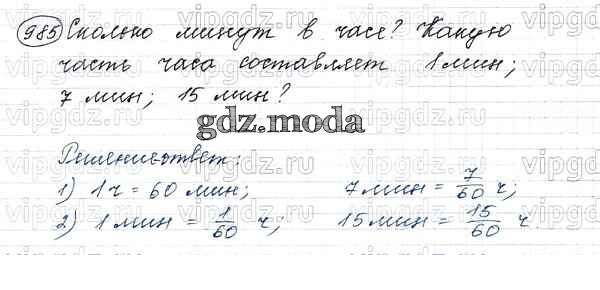 985 Сколько минут в часе? Какую
часть часа составляет 1 мин;
7 мин; 15 мин?
gdz.moda
Решение-ответ:
1) 1 ч = 60 мин; 7 мин = 7/60 ч;
2) 1 мин = 1/60 ч; 15 мин = 15/60 ч.
vipgdz.ru